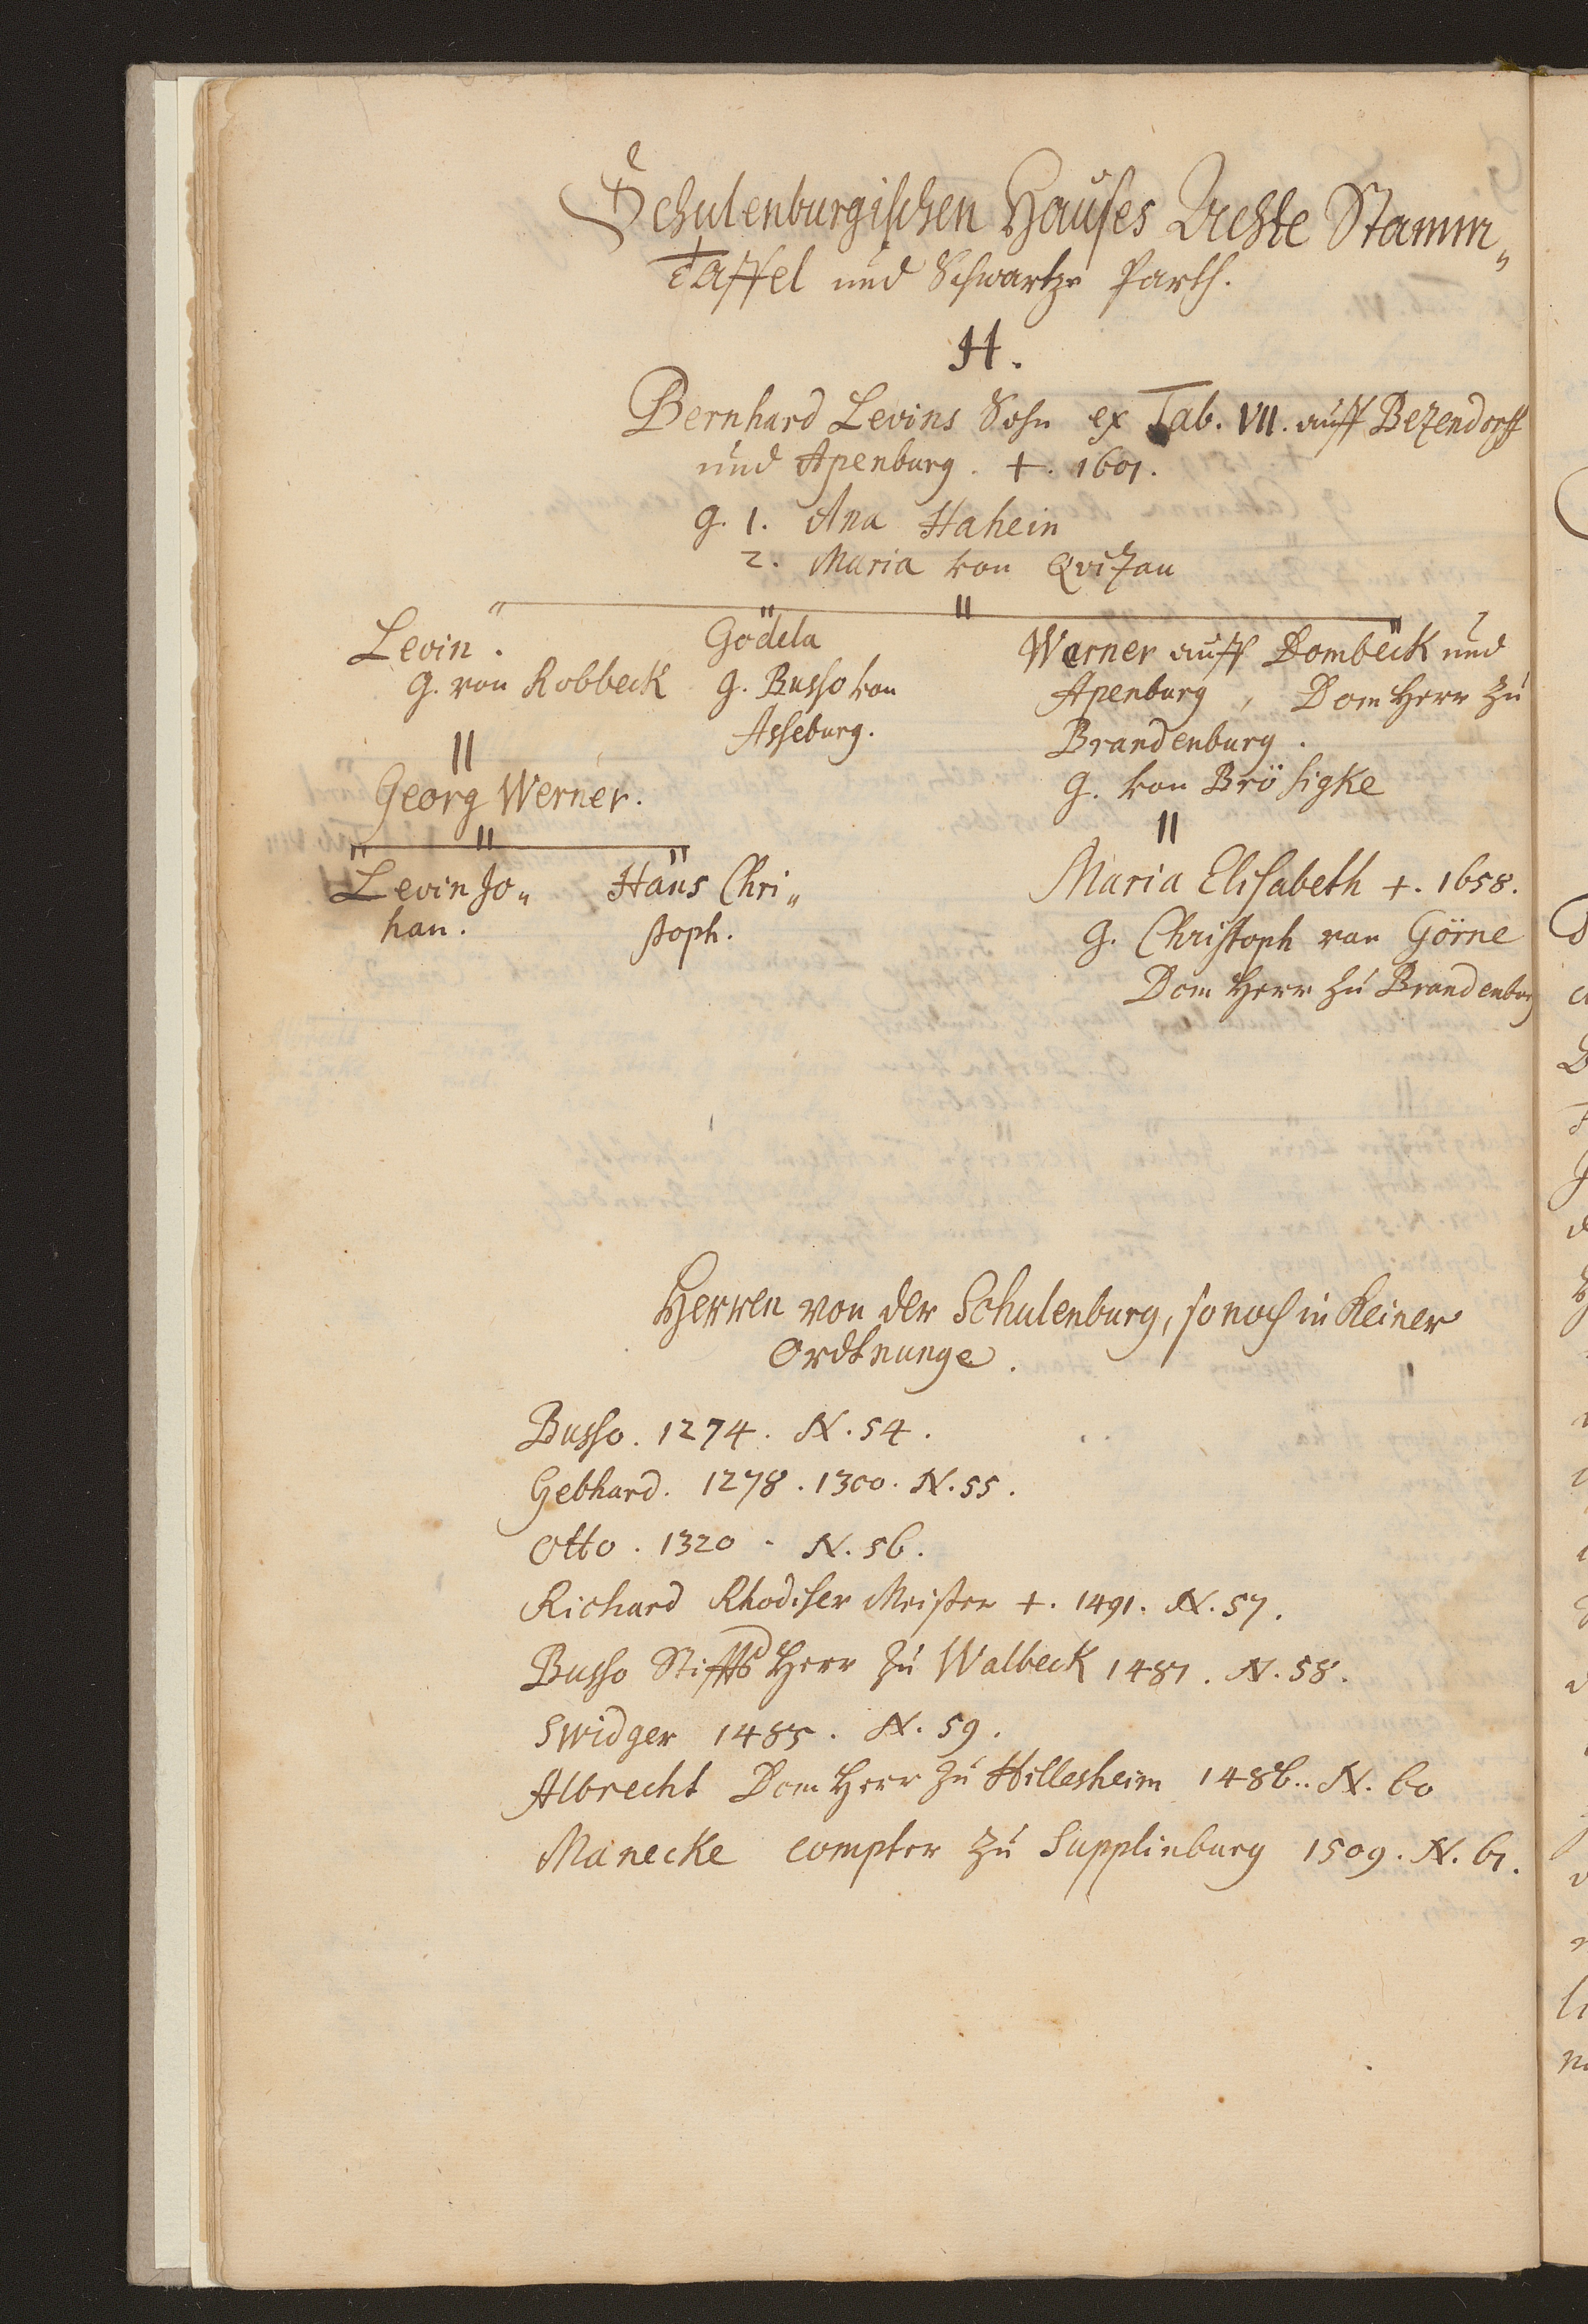 Schulenburgischen Hauses Achte Stamm„
Taffel und Schwartze Parth.
H.
Bernhard Levins Sohn ex Tab. VII. auff Bezendorff
und Apenburg. †. 1601.
g. 1. Ana Hahein
2. Maria von Qvitzau
Levin.
g. von Robbeck
Gödela
g. Busso von
Asseburg.
Warner auff Dombeck und
Apenburg, Dom Herr zu
Brandenburg.
g. von Brösigke
Georg Werner.
Levin Jo„
han.
Hans Chri„
stoph.
Maria Elisabeth †. 1658.
g. Christoph van Görne
Dom Herr zu Brandenburg
Herren von der Schulenburg, so noch in Keiner
Ordtnunge.
Busso. 1274. N. 54.
Gebhard. 1278. 1300. N. 55.
Otto. 1320. N. 56.
Richard Rhodiser Meister †. 1491. N. 57.
Busso Stiffts Herr zu Walbeck 1481. N. 58.
Swidger 1485. N. 59.
Albrecht Dom Herr zu Hillesheim 1486.. N. 60
Manecke compter zu Supplinburg 1509. N. 61.